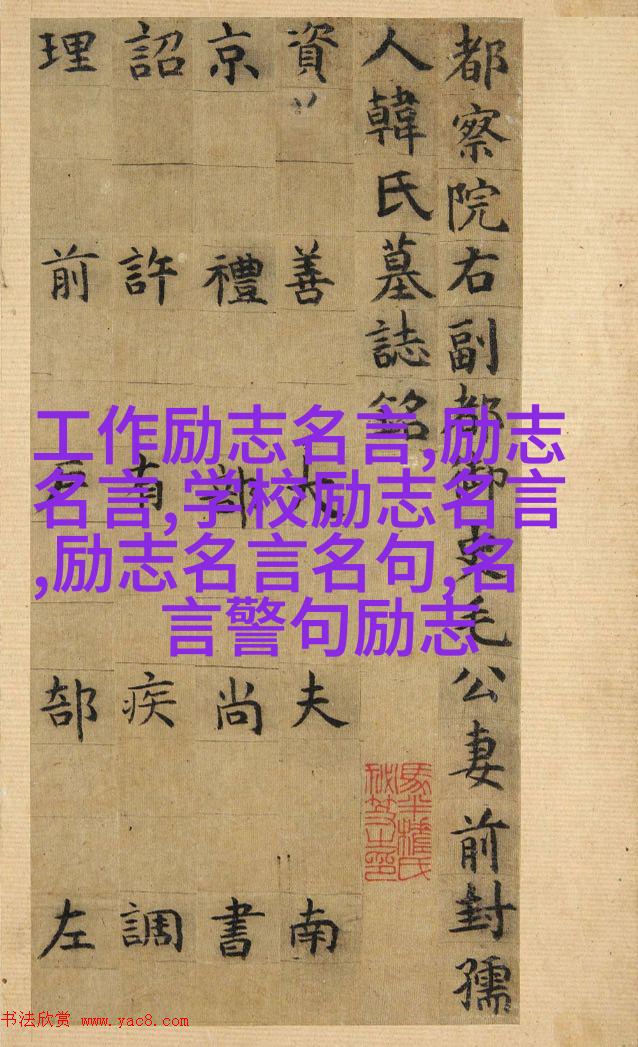 都察院右副都御史毛公妻前封孺
人韓氏墓誌銘
資善大夫南
京禮部尚書
詔許有疾調
理前部左
工作励志名言,励志
名言,学校励志名言
,励志名言名句,名
言警句励志
书法欣赏 www.yac8.com